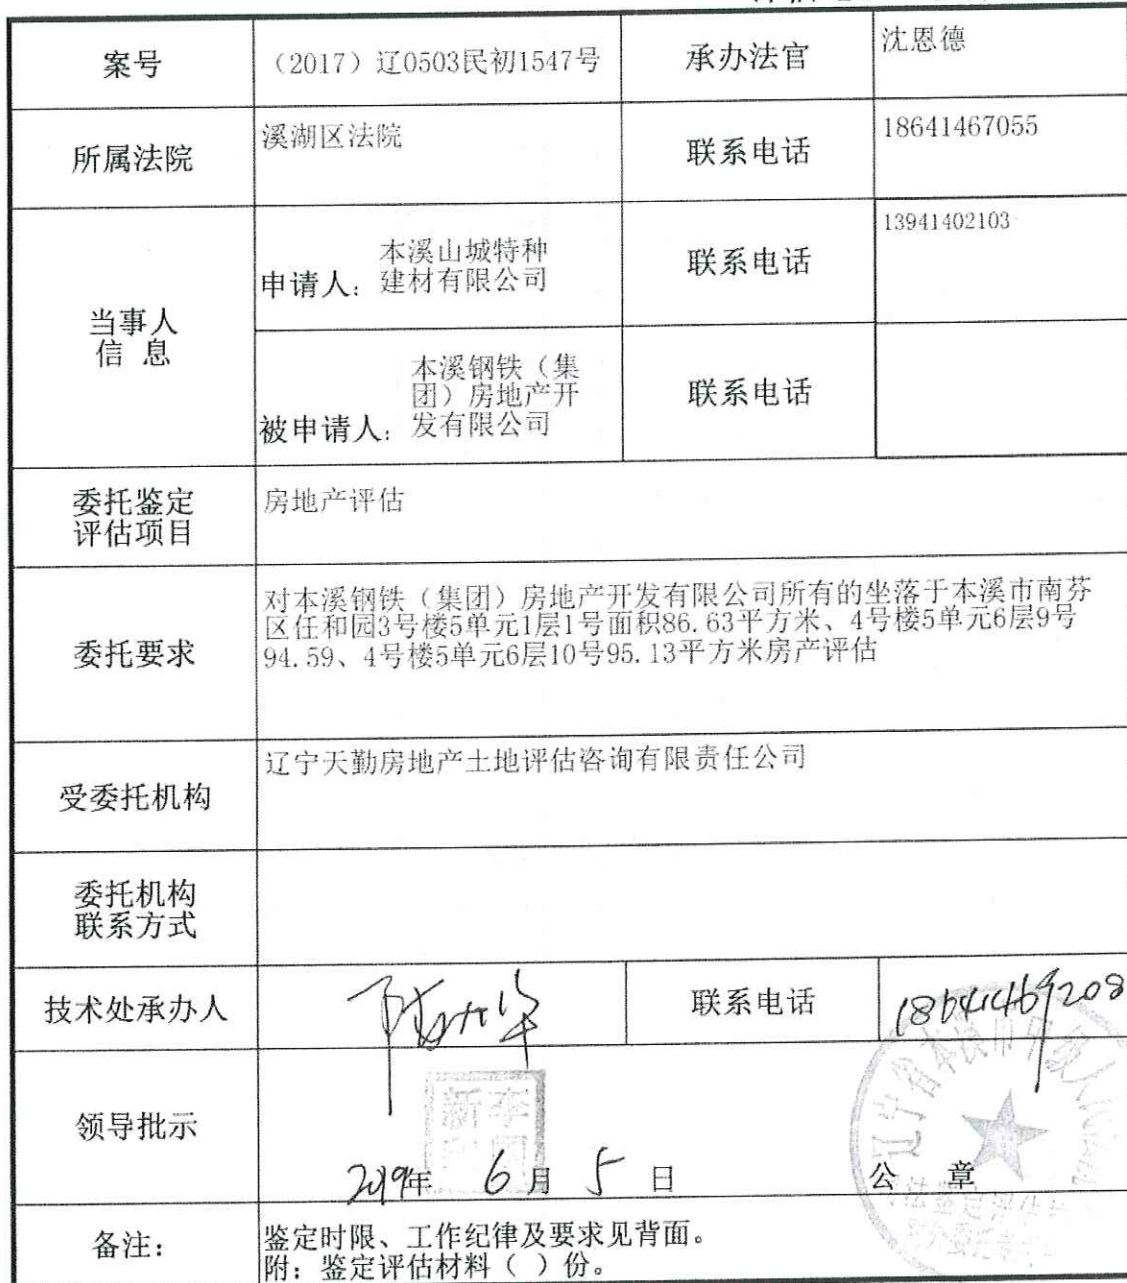 案号 （2017）辽0503民初1547号 承办法官 沈恩德
所属法院 溪湖区法院 联系电话 18641467055
当事人
信 息
申请人：
本溪山城特种
建材有限公司
联系电话 13941402103
被申请人：
本溪钢铁（集
团）房地产开
发有限公司
联系电话
委托鉴定
评估项目
房地产评估
委托要求
对本溪钢铁（集团）房地产开发有限公司所有的坐落于本溪市南芬
区任和园3号楼5单元1层1号面积86.63平方米、4号楼5单元6层9号
94.59、4号楼5单元6层10号95.13平方米房产评估
受委托机构 辽宁天勤房地产土地评估咨询有限责任公司
委托机构
联系方式
技术处承办人 联系电话 18641469208
领导批示
2019年 6月 5日 公 章
备注：
鉴定时限、工作纪律及要求见背面。
附：鉴定评估材料（ ）份。